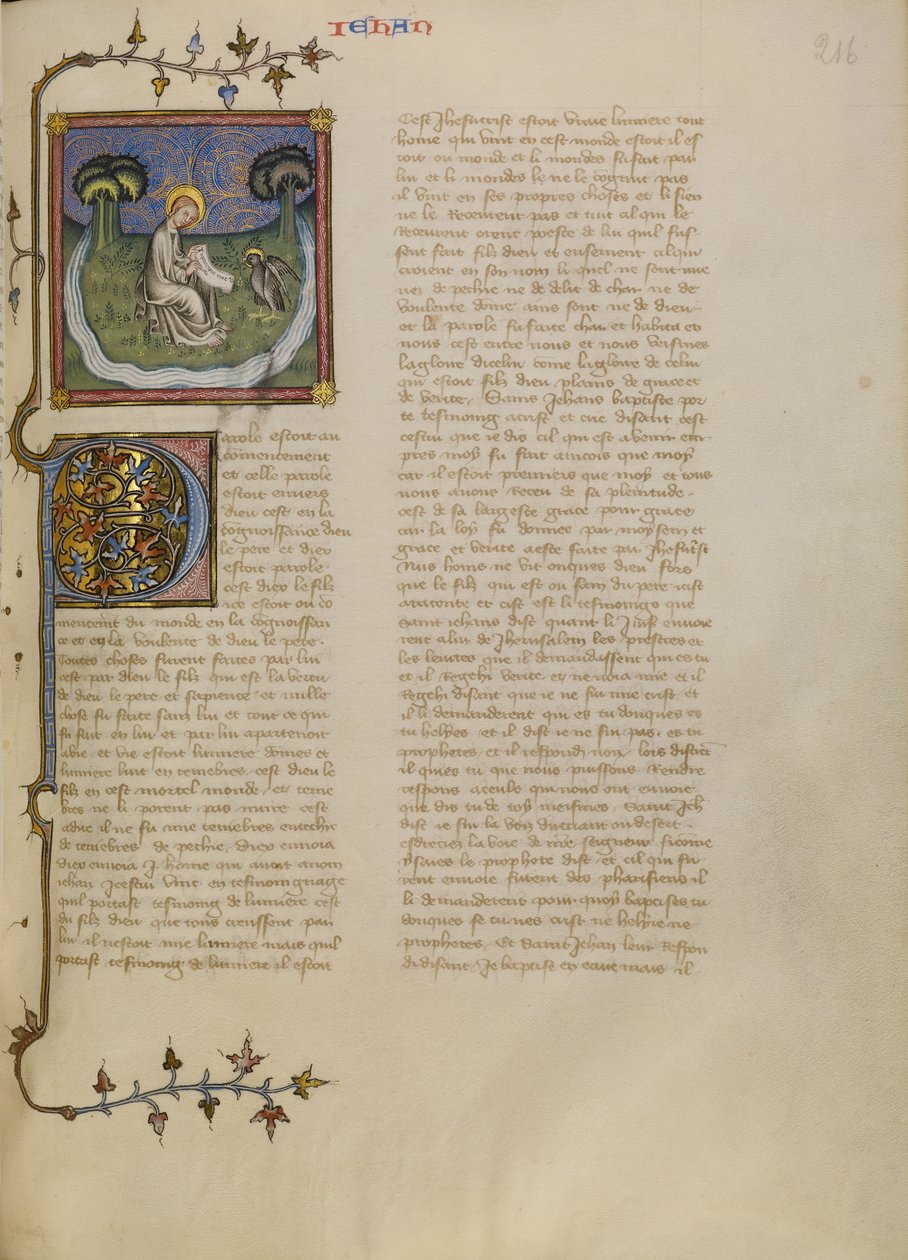 IEHAN
216
Parole estoit au
comencement
et celle parole
estoit envers
dieu cest en la
cognoissance dieu
le pere et diex
estoit parole
cest diex le filz
ice estoit ou co
mencemt du monde en la cognoissan
ce et en la voulente de dieu le pere.
Toutes choses furent faites par lui
cest par dieu le filz qui est la vertu
de dieu le pere et sapience et nulle
chose fu faite sans lui et tout ce qui
fu fait en lui et par lui apartenoit
a vie et vie estoit lumiere domes et
lumiere luit en tenebres. cest dieu le
filz en cest mortel monde. et tene
bres ne li porent pas nuire cest
adire il ne fu mie tenebres entechie
de tenebres de pechie. diex envoia
diex envoia .I. home qui avoit anom
iehan Icestui vint en tesmoingnage
quil portast tesmoing de lumiere cest
du filz dieu que tous creussent par
lui il nestoit mie lumiere mais quil
portast tesmoing de lumiere il estoit
Cest Jhesucrist estoit vraie lumiere tout
home qui vint en cest monde estoit il es
toit ou monde et li mondes fu fait par
lui et li mondes le ne le cognut pas
il vint en ses propres choses et li sien
ne le Recourent pas et tuit cil qui le
Recourent orent poeste de lui quil fus
sent fait filz dieu et ensement cilqui
croient en son nom li quel ne sont mie
nez de pechie ne de delit de char ne de
voulente dome ains sont ne de dieu
et la parole fu faite char et habita en
nous cest entre nous et nous veismes
la gloire dicelui come la gloire de celui
qui estoit filz dieu plains de grace et
de verite. Sains Jehans baptiste por
te tesmoing acrist et crie disant cest
cestui que ie dis cil qui est avenir em
pres moy fu fait aincois que moy
car il estoit premiers que moy et tous
nous avons Receu de sa plenitude.
cest de sa largesce grace pour grace
car la loy fu donnee par moysem et
grace et verite aeste faite par Jhesucst
Nuls homs ne vit onques dieu fors
que le filz qui est ou sain du pere icist
araconte et cist est li tesmoings que
Saint iehans dist quant li Juif envoie
rent a lui de Jherusalem les prestres et
les levites que il demandassent qui es tu
et il Regehi verite et ne noia mie et il
Regehi disant que ie ne sui mie crist et
il li demanderent qui es tu donques es
tu helyes et il dist ie ne sui pas. es tu
prophetes. et il respondi non. lors distret
il qui es tu que nous puissons Rendre
respons aceuls qui nous ont envoie
que dis tu de toy meismes. Saint Jeh
dist ie sui la vois du criant ou desert.
esdreciez la voie de nre seigneur sicome
ysaies le prophete dist et cil qui fu
rent envoie furent des pharisiens il
li demanderent pour quoy baptises tu
donques se tu nes crist ne helyie ne
prophetes. Et Saint Jehan leur Respon
di disant. Je baptise en eaue mais il